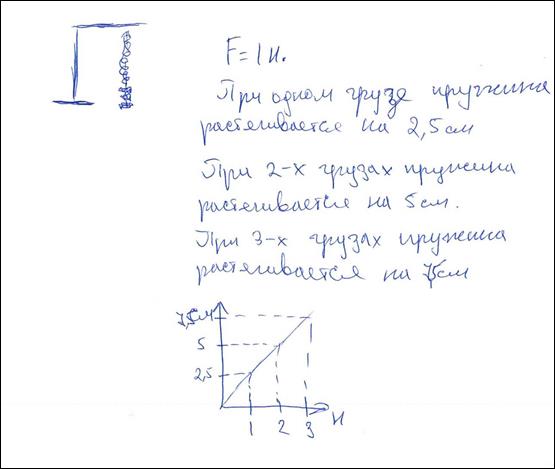 F = 1 Н.
При одном грузе пружина
растягивается на 2,5 см
При 2-х грузах пружина
растягивается на 5 см.
При 3-х грузах пружина
растягивается на 7,5 см
7,5 см
5
2,5
1 2 3 Н